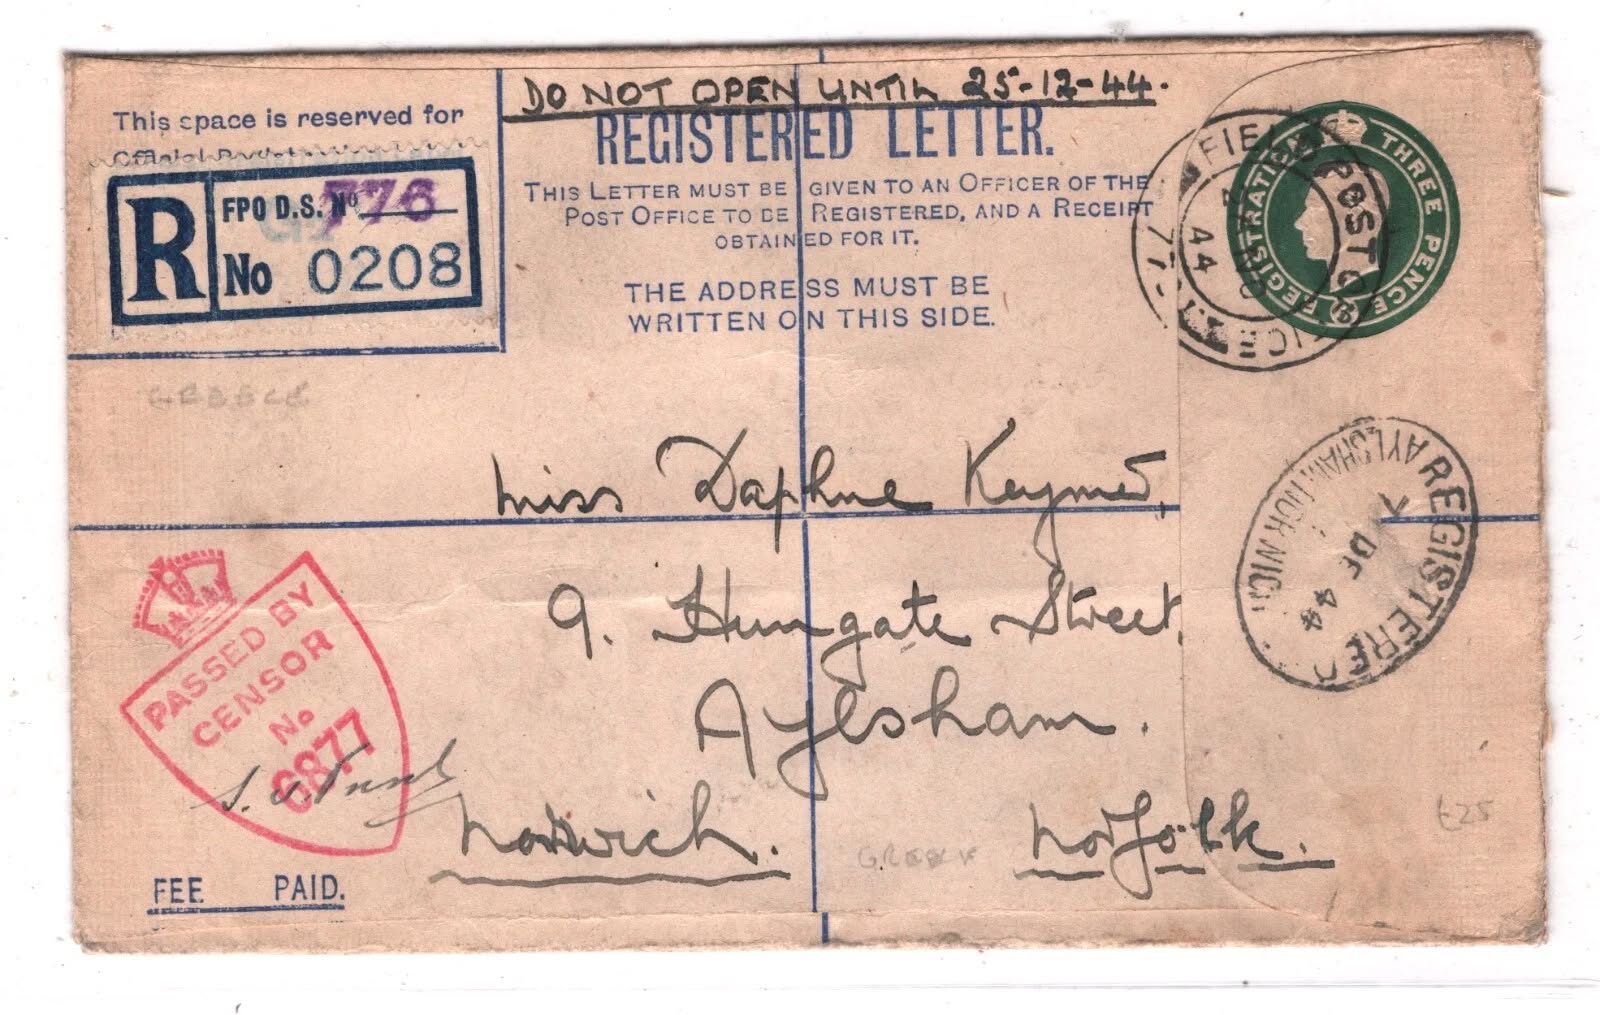 DO NOT OPEN UNTIL 25-12-44.
This space is reserved for
REGISTERED LETTER.
THIS LETTER MUST BE GIVEN TO AN OFFICER OF THE
POST OFFICE TO BE REGISTERED, AND A RECEIPT
OBTAINED FOR IT.
THE ADDRESS MUST BE
WRITTEN ON THIS SIDE.
R
FPO D.S. No 776
No 0208
FIELD POST OFFICE
44
REGISTRATION THREE PENCE
GREECE
Miss Daphne Keymer,
9. Hungate Street,
Aylsham.
Norwich. Norfolk.
REGISTERED
AYLSHAM NORWICH
DE 44
PASSED BY
CENSOR
No
6877
GREEK
£25
FEE PAID.